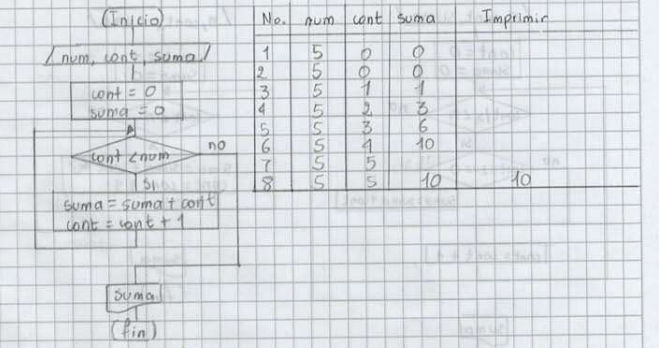 (Inicio)
/num, cont, suma/
cont = 0
suma = 0
A
cont < num
no
Si
suma = suma + cont
cont = cont + 1
suma
(fin)
No. num cont suma Imprimir
1 5 0 0
2 5 0 0
3 5 1 1
4 5 2 3
5 5 3 6
6 5 4 10
7 5 5
8 5 5 10 10